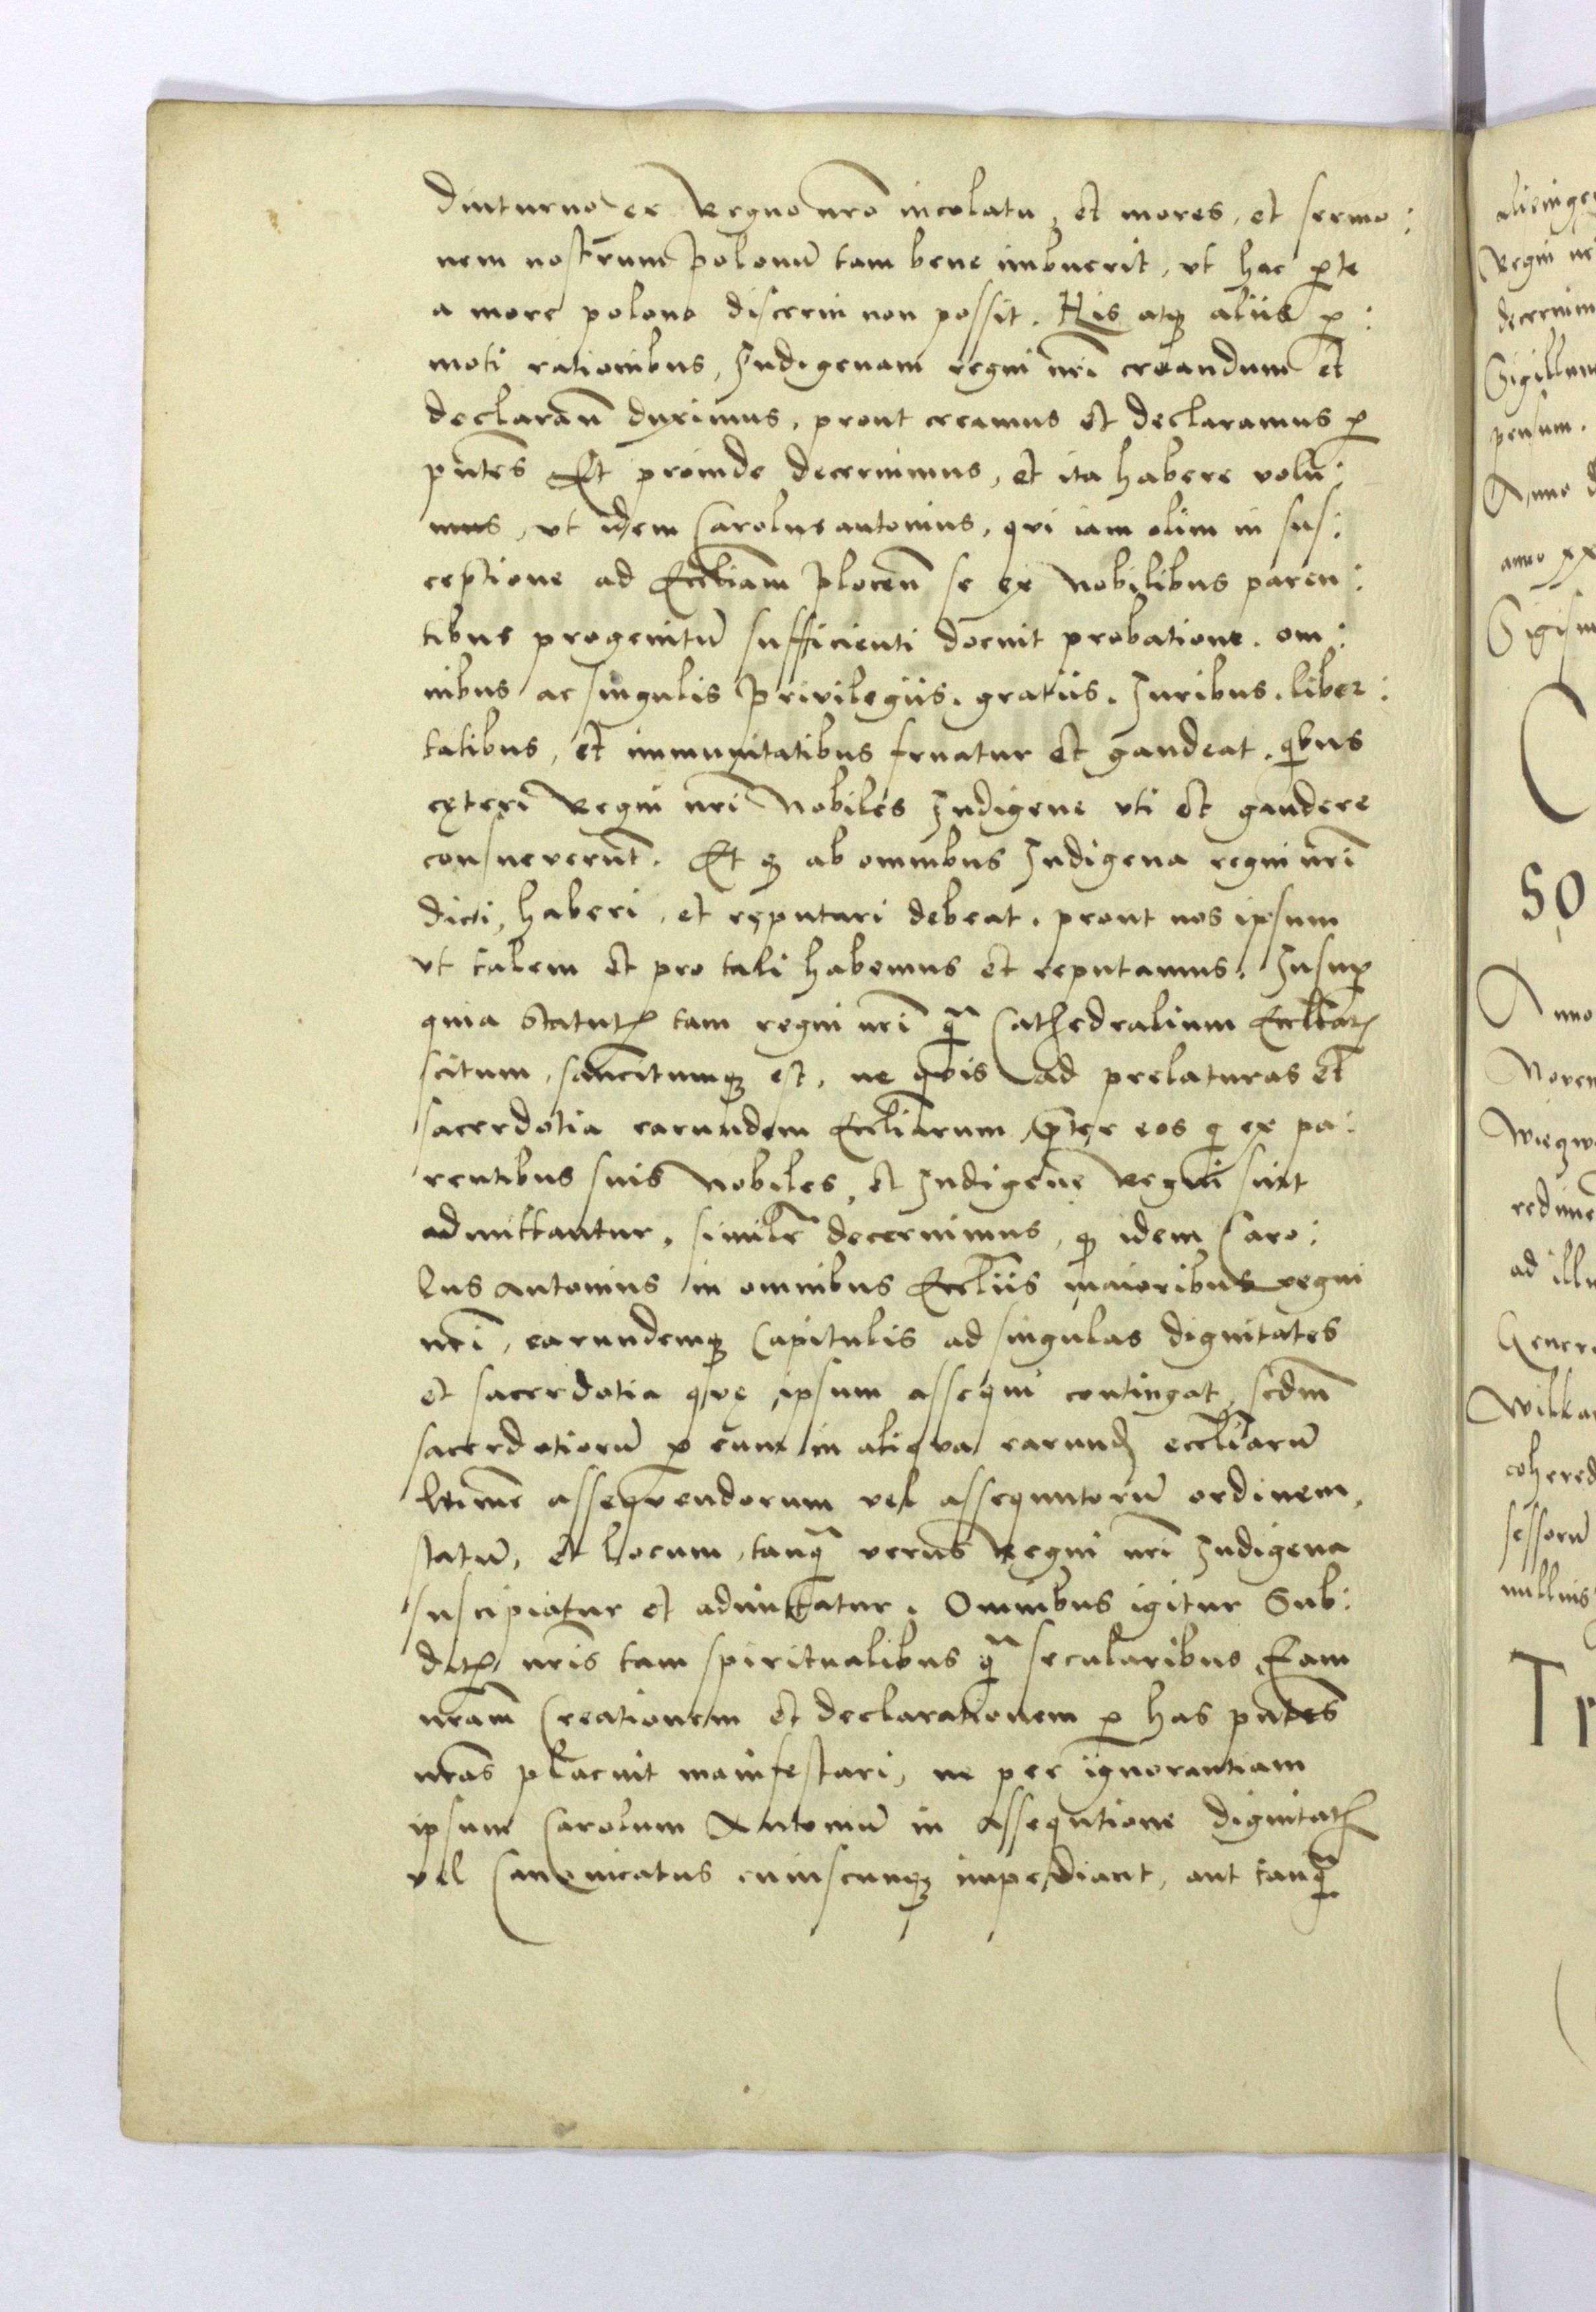 diuturno ex Regno nrō incolatu, et mores, et sermo:
nem nostrum Polonū tam bene imbuerit, vt hac pte
a more polono discerni non possit. His atqꝫ aliis p:
moti rationibus, Indigenam regni nrī creandum et
declaran̄ duximus, prout creamus et declaramus p
pn̄tes Et proinde decernimus, et ita habere volu:
mus, vt idem Carolus antonius, qui iam olim in sus:
ceptione ad Eccl̄iam Plocen̄ se ex Nobilibus paren:
tibus progenitū sufficienti docuit probatione. om:
nibus ac singulis Privilegiis. gratiis. Iuribus. liber:
tatibus, et immunitatibus fruatur et gaudeat. qbus
cęteri Regni nrī Nobiles Indigene vti et gaudere
consueverūt. Et qꝫ ab omnibus Indigena regni nrī
dici, haberi, et reputari debeat. prout nos ipsum
vt talem et pro tali habemus et reputamus. Insup
quia Statutꝝ tam regni nrī q̄ Cathedralium Eccl̄iarꝝ
scitum, sancitumqꝫ est, ne quis ad prelaturas et
sacerdotia earundem Eccl̄iarum p̄ter eos q ex pa:
rentibus suis Nobiles, et Indigene Regni sint
admittantur, similr̄ decernimus, qꝫ idem Caro:
lus Antonius in omnibus Eccl̄iis maioribus regni
nrī, earundemqꝫ Capitulis ad singulas dignitates
et sacerdotia quę ipsum assequi contingat, scdm̄
sacerdotiorū p eum in aliqua earundꝫ eccl̄iarū
ltime assequendorum vel assequutorū ordinem,
statū, et locum, tanq̄ verus Regni nrī Indigena
suscipiatur et admittatur. Omnibus igitur Sub:
ditꝭ nrīs tam spiritualibus q̄ secularibus Eam
nrām Creationem et declarationem p has pn̄tes
nrās placuit manifestari, ne per ignorantiam
ipsum Carolum Antoniū in Assequtione dignitatꝭ
vel Canonicatus cuiuscunqꝫ impediant, aut tanq̄
Regni
Sigillum
pensum.
Anno
anno xx
50
Anno
Noven
ad illu
Genero
cohered
sessorū
nullius